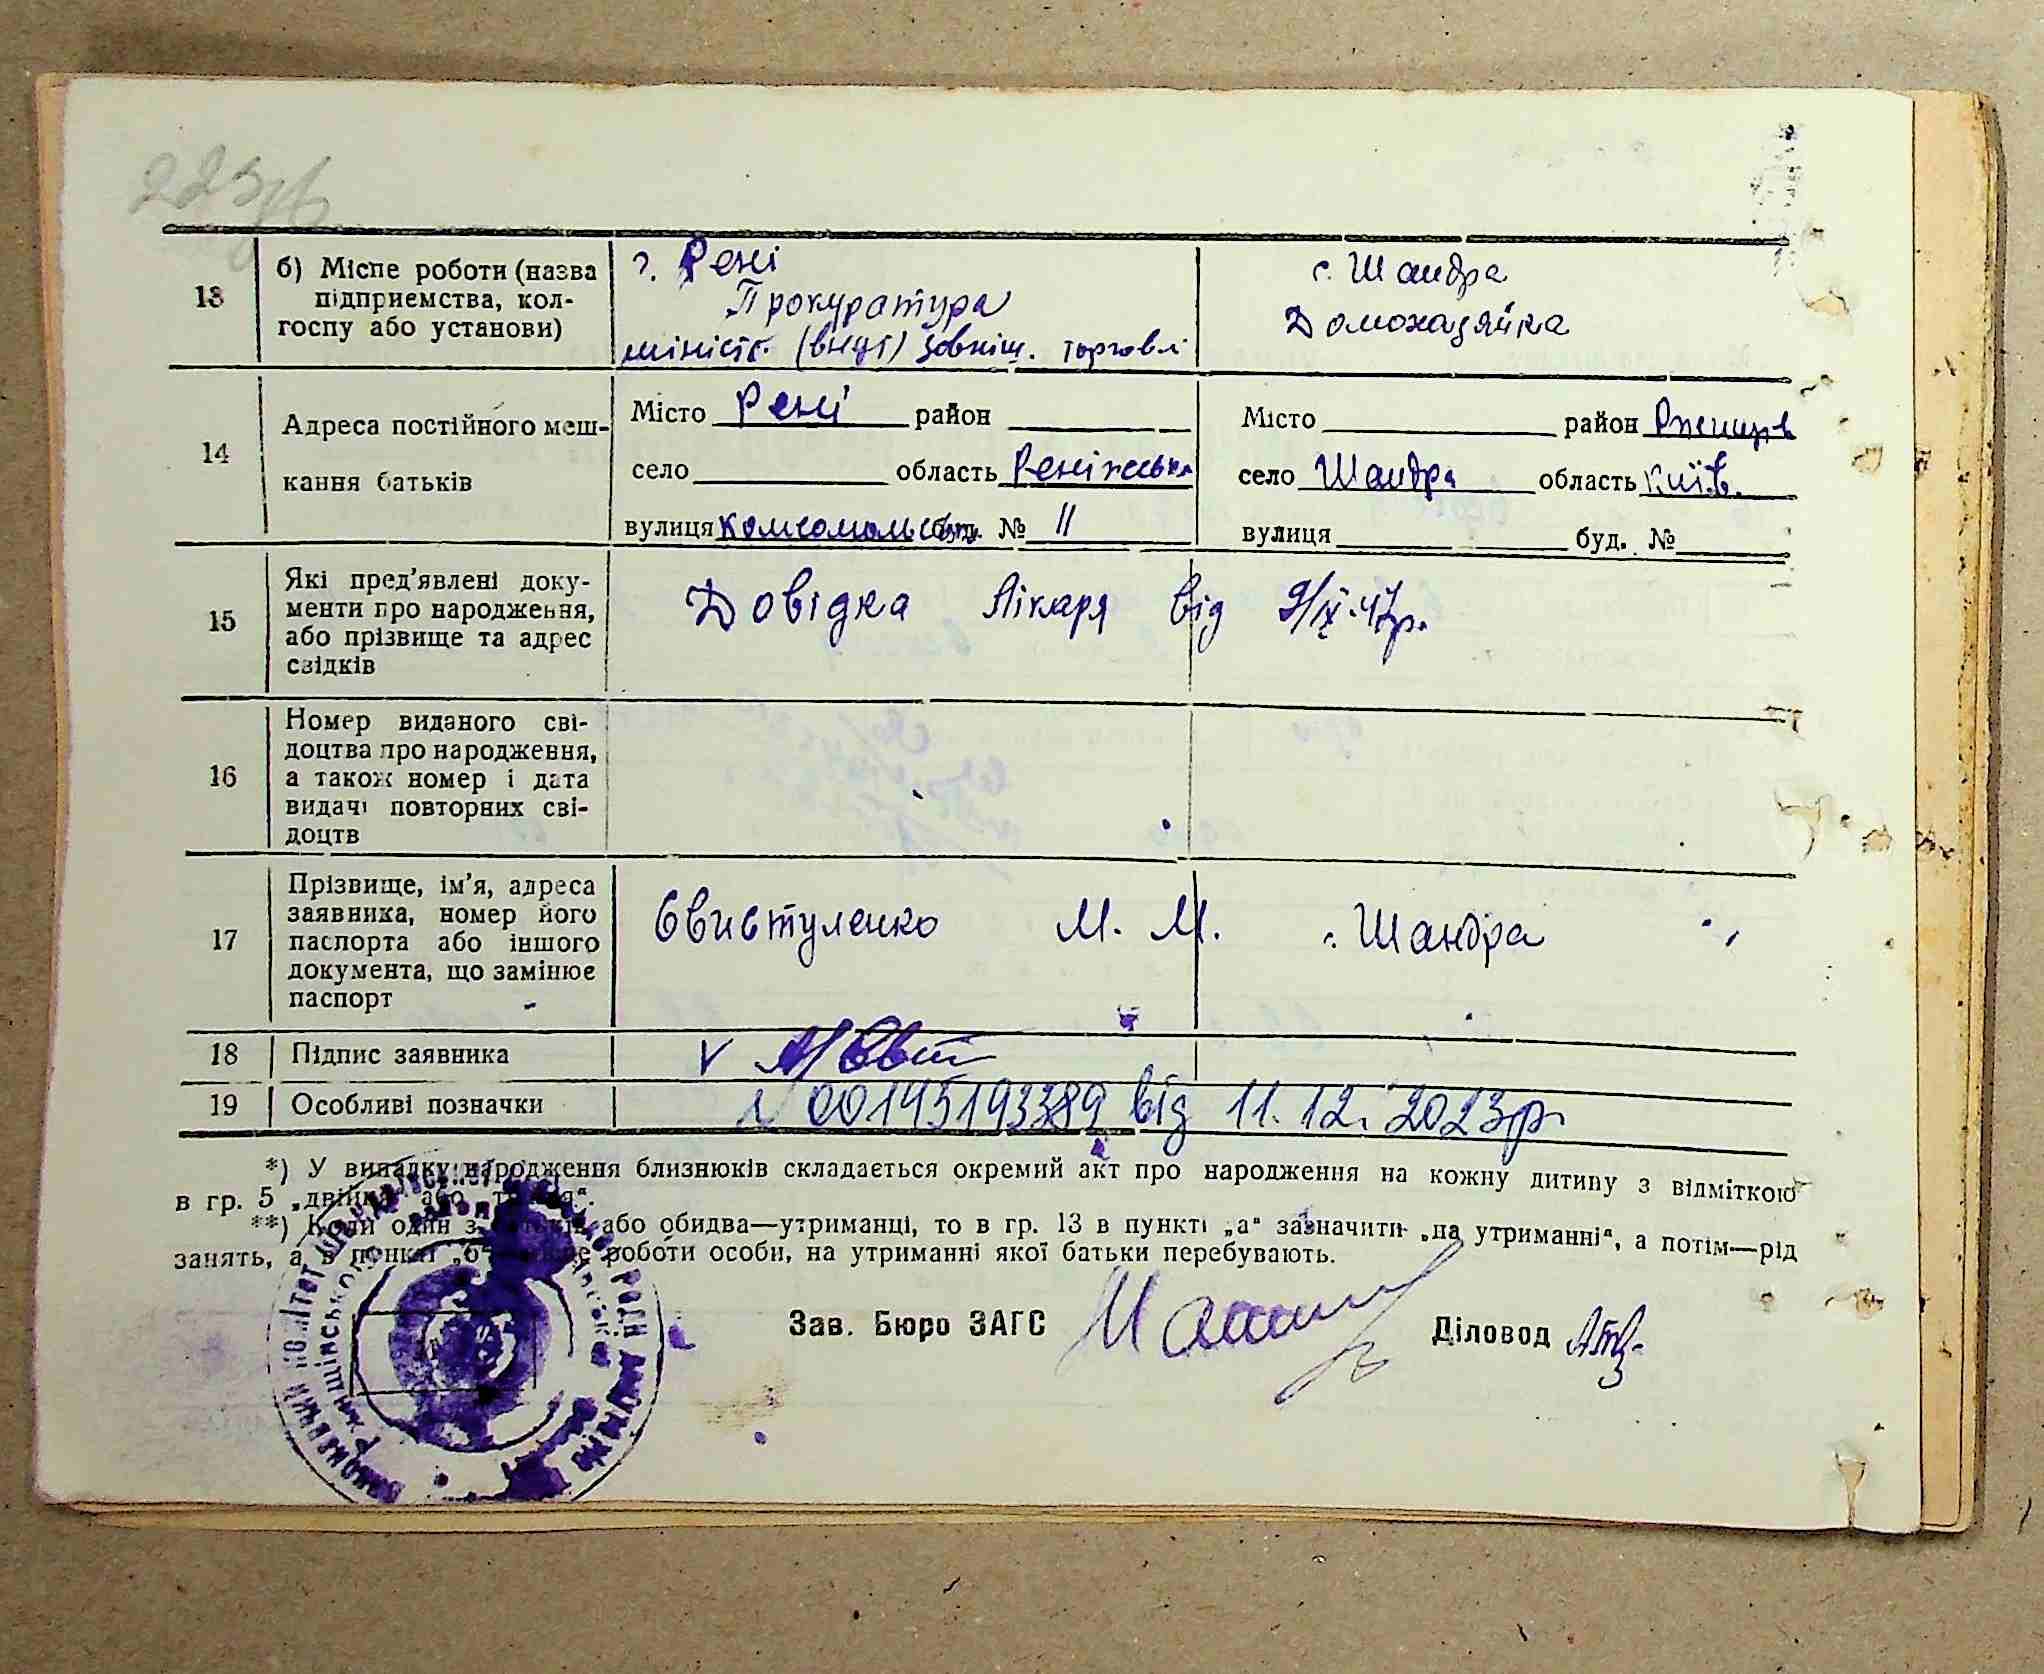 223
13
б) Місце роботи (назва
підприємства, кол-
госпу або установи)
г. Рені
Прокуратура
мініст. (внут) зовніш. торговлі
с. Шандра
Домохазяйка
14
Адреса постійного меш-
кання батьків
Місто Рені район
село область Ренійська
вулиця комсомольська буд. № 11
Місто район Ржищів
село Шандра область Київ.
вулиця буд. №
15
Які пред'явлені доку-
менти про народження,
або прізвище та адрес
свідків
Довідка лікаря від 9/ІX-47р.
16
Номер виданого сві-
доцтва про народження,
а також номер і дата
видачі повторних сві-
доцтв
17
Прізвище, ім'я, адреса
заявника, номер його
паспорта або іншого
документа, що замінює
паспорт
Свистуленко М. М. с. Шандра
18
Підпис заявника
19
Особливі позначки
№ 00145193389 від 11.12.2023р.
*) У випадку народження близнюків складається окремий акт про народження на кожну дитину з відміткою
в гр. 5 „двійня або трійня“.
**) Коли один з батьків або обидва—утриманці, то в гр. 13 в пункті „а“ зазначити „на утриманні“, а потім—рід
занять, а в пункті „б“ місце роботи особи, на утриманні якої батьки перебувають.
Зав. Бюро ЗАГС
Діловод